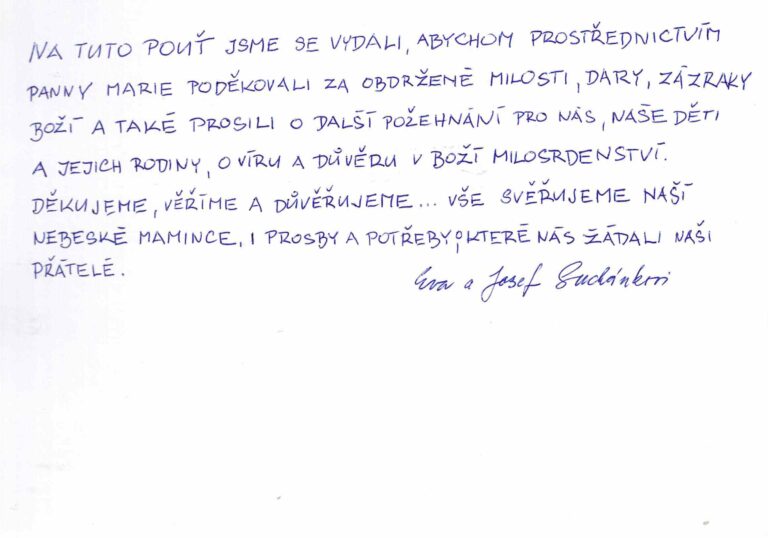 NA TUTO POUŤ JSME SE VYDALI, ABYCHOM PROSTŘEDNICTVÍM
PANNY MARIE PODĚKOVALI ZA OBDRŽENÉ MILOSTI, DARY, ZÁZRAKY
BOŽÍ A TAKÉ PROSILI O DALŠÍ POŽEHNÁNÍ PRO NÁS, NAŠE DĚTI
A JEJICH RODINY, O VÍRU A DŮVĚRU V BOŽÍ MILOSRDENSTVÍ.
DĚKUJEME, VĚŘÍME A DŮVĚŘUJEME... VŠE SVĚŘUJEME NAŠÍ
NEBESKÉ MAMINCE, I PROSBY A POTŘEBY, O KTERÉ NÁS ŽÁDALI NAŠI
PŘÁTELÉ.
Eva a Josef Suchánkovi